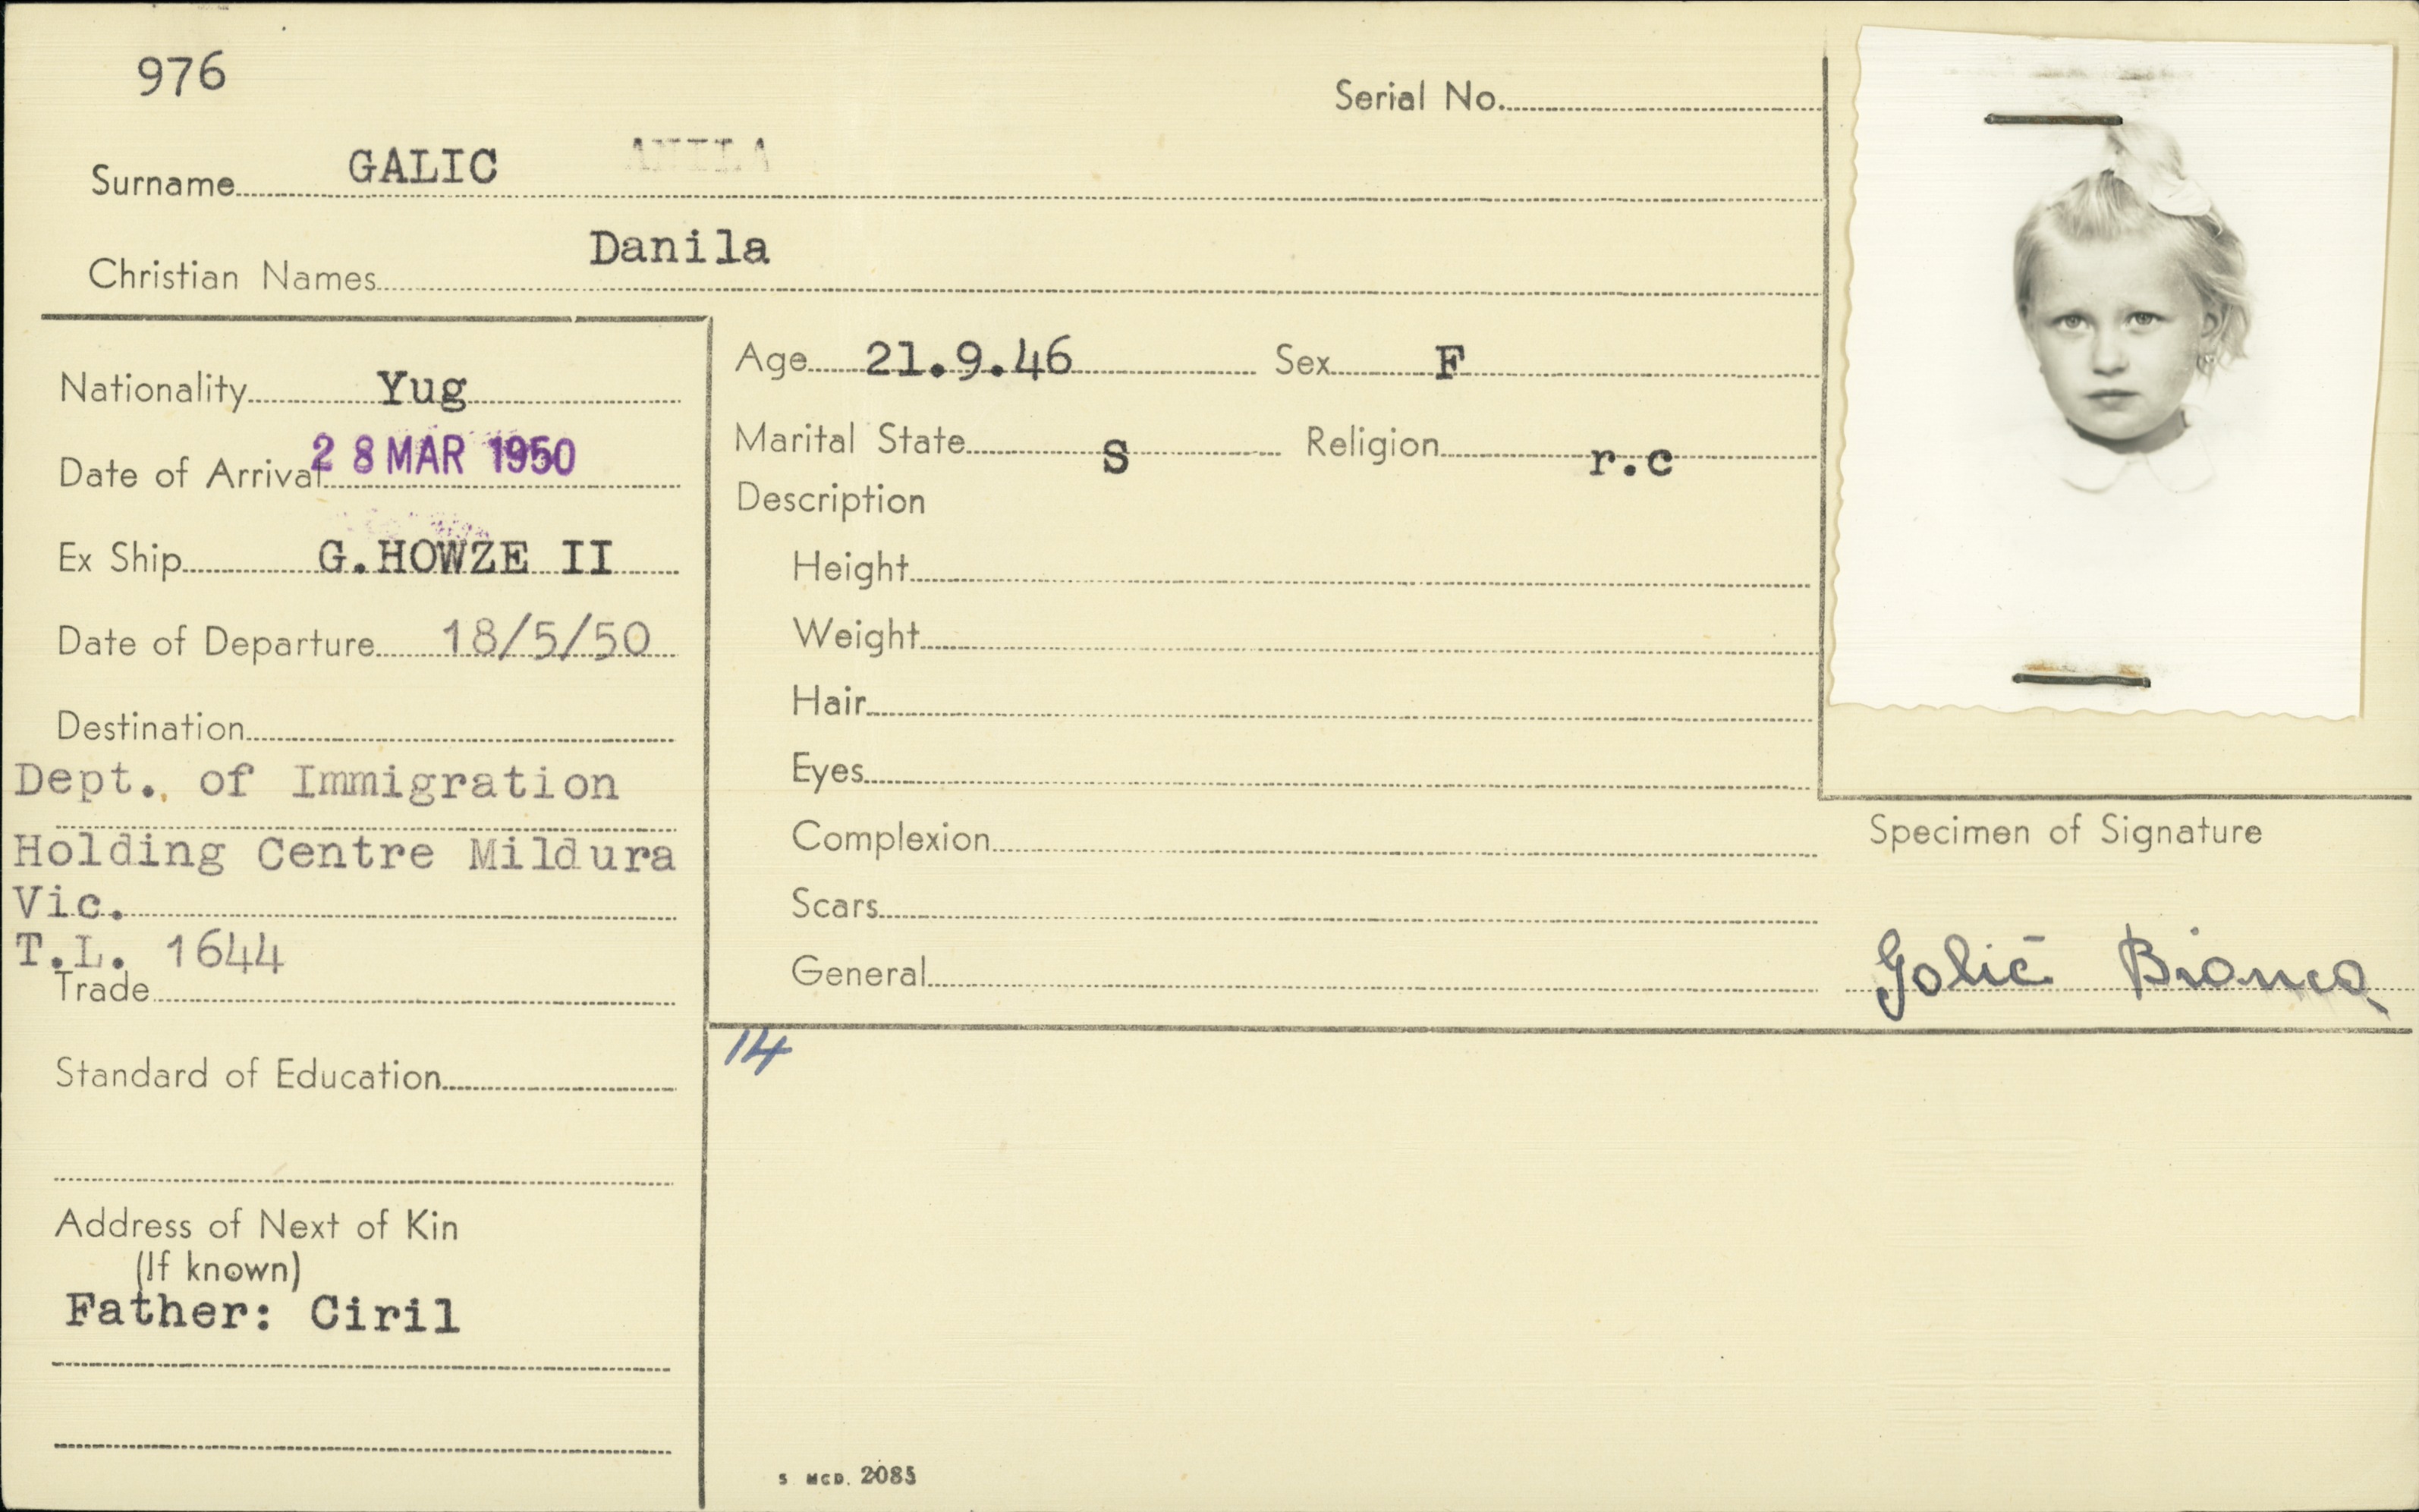 976
Serial No.
Surname GALIC ANILA
Christian Names Danila
Nationality Yug
Date of Arrival 28 MAR 1950
Ex Ship G.HOWZE II
Date of Departure 18/5/50
Destination
Dept. of Immigration
Holding Centre Mildura
Vic.
T.L. 1644
Trade
Standard of Education
Address of Next of Kin
(If known)
Father: Ciril
Age 21.9.46 Sex F
Marital State S Religion r.c
Description
Height
Weight
Hair
Eyes
Complexion
Scars
General
Specimen of Signature
Galič Bianca
14
S MCD. 2085